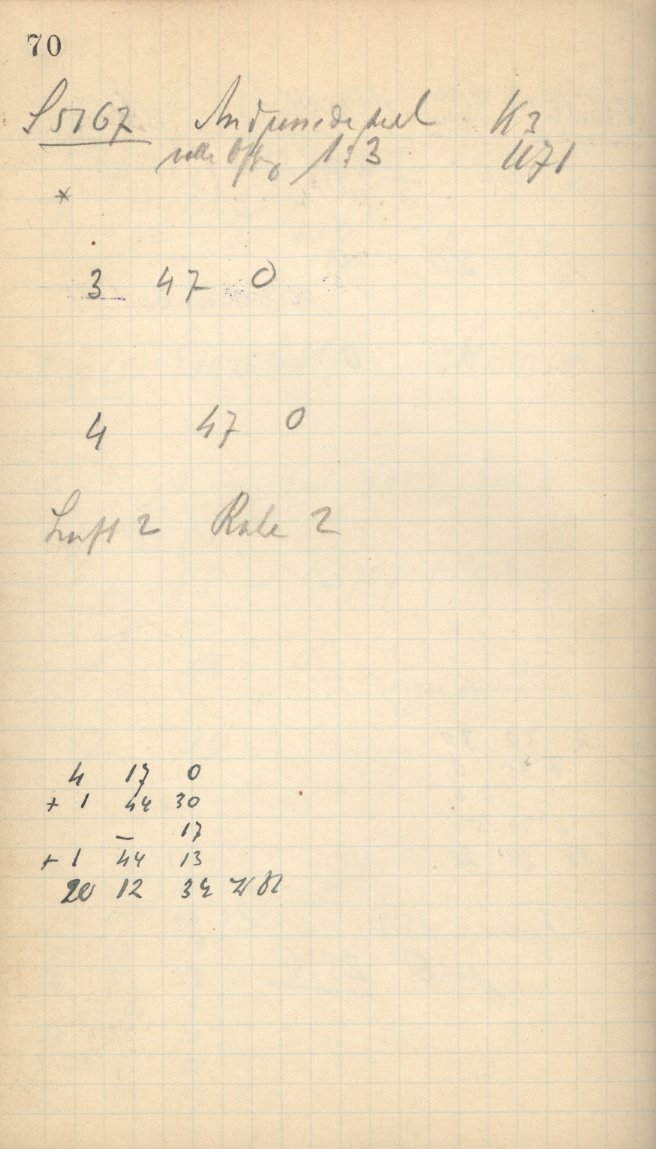 70
S 5167 Andromedanebel K3
volle Öffng 1:3 1171
*
3 47 0
4 47 0
Luft 2 Ruhe 2
4 17 0
+ 1 44 30
– 17
+ 1 44 13
20 12 34